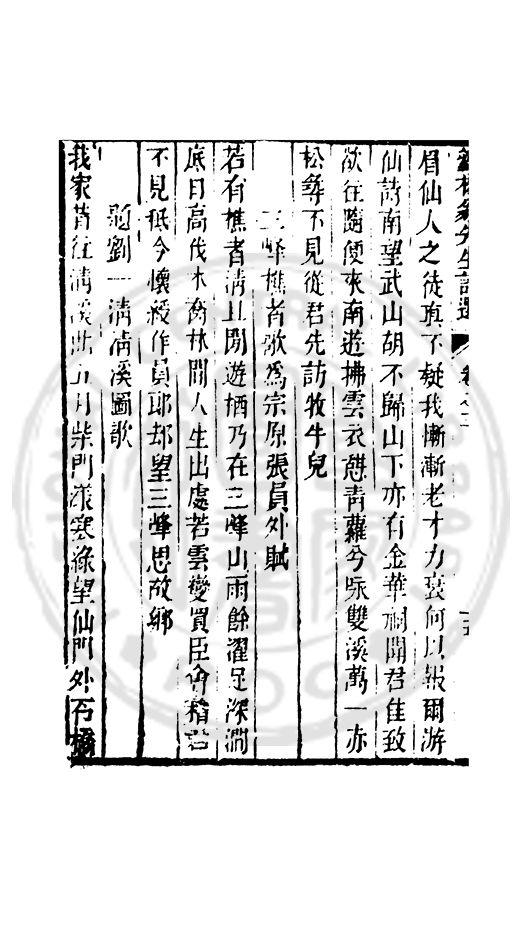 眉仙人之徒真不疑我慚漸老才力衰何以報爾游
仙詩南望武山胡不歸山下亦有金華洞聞君佳致
欲往隨便來南遊拂雲衣憇青蘿兮咏雙溪萬一赤
松彝不見從君先訪牧牛兒
三峰樵者歌為宗原張員外賦
若有樵者清且閒遊栖乃在三峰山雨餘濯足深澗
底日高伐木喬林間人生出處若雲變買臣會稽君
不見秪今懷綬作員郎却望三峰思故鄉
題劉一清清溪圖歌
我家昔往清溪五月柴門漾寒綠望仙門外石橋